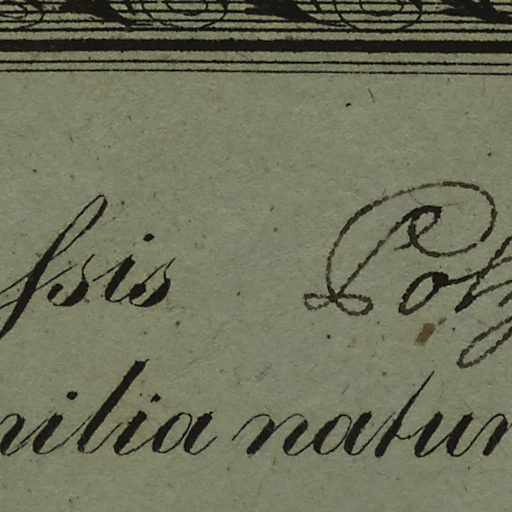 ſsis Poly
milia natur